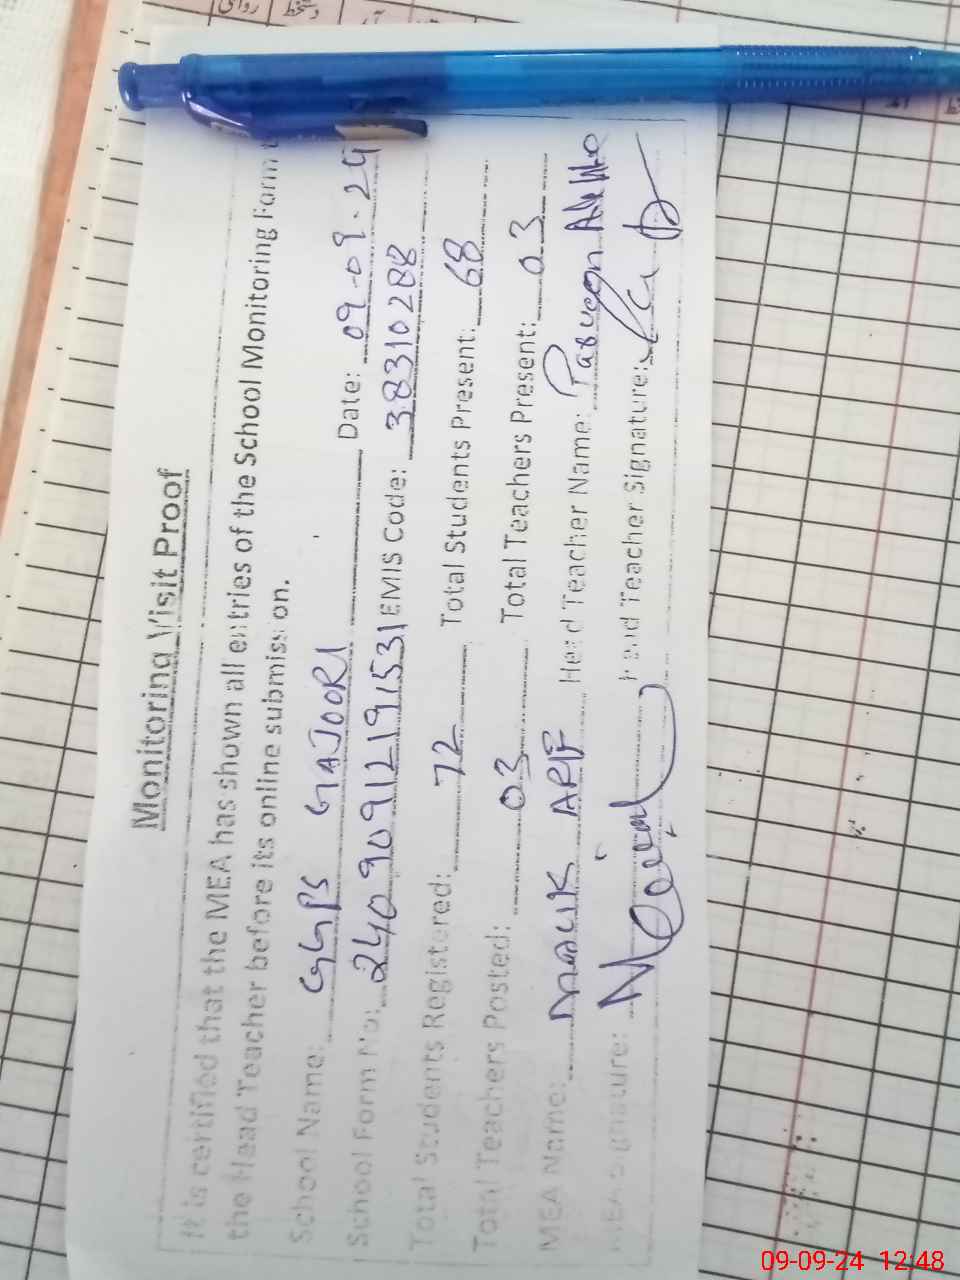 Monitoring Visit Proof
It is certified that the MEA has shown all entries of the School Monitoring Form t
the Head Teacher before its online submission.
School Name: GGPS GAJOORI Date: 09-09-24
School Form No: 24090912191531 EMIS Code: 38310288
Total Students Registered: 72 Total Students Present: 68
Total Teachers Posted: 03 Total Teachers Present: 03
MEA Name: MALIK ARIF Head Teacher Name:
MEA Signature: Head Teacher Signature:
09-09-24 12:48